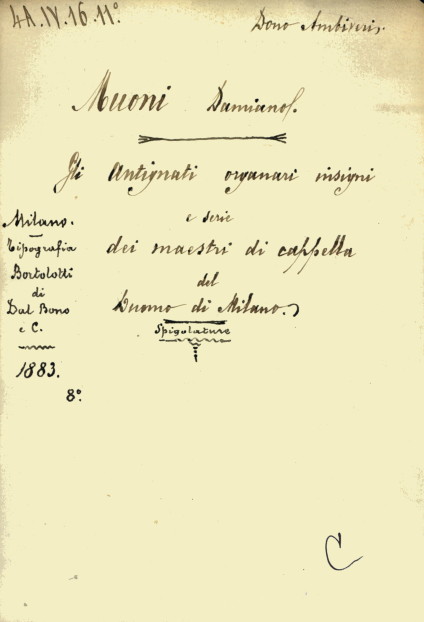 4A.IV.16.11°.
Dono Ambiveri.
Muoni Damiano.
Gli Antignati organari insigni
e serie
dei maestri di cappella
del
Duomo di Milano.
Spigolature
Milano.
Tipografia
Bortolotti
di
Dal Bono
e C.
1883.
8°.
C